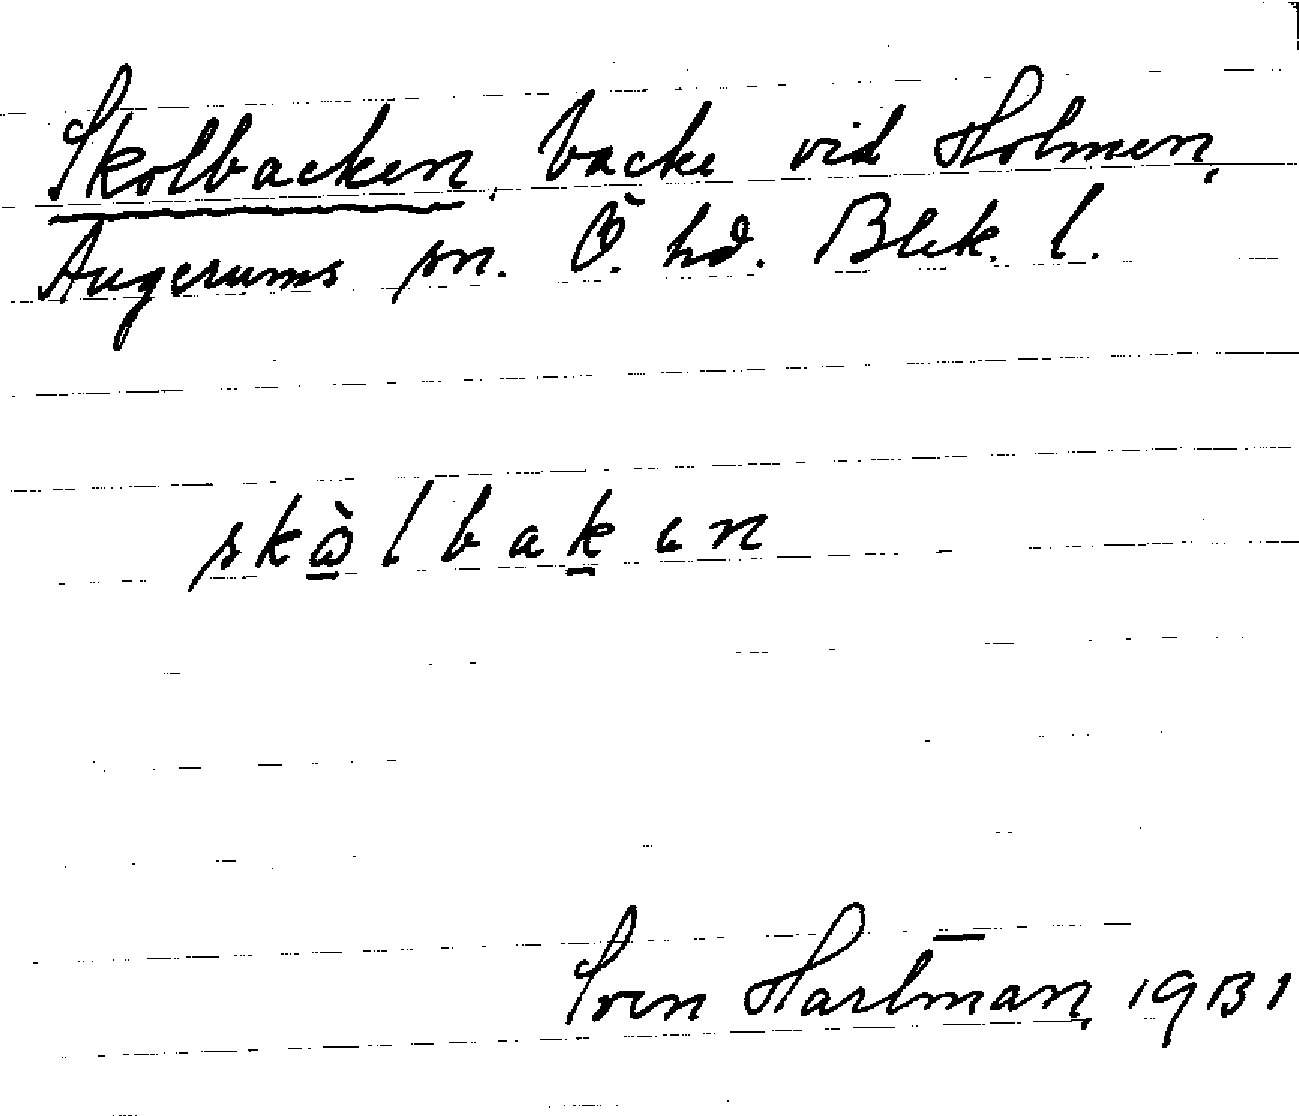 Skolbacken, backe vid Holmen,
Augerums sn. Ö. hd. Blek. l.
skòlbakɩn
Sven Hartman, 1931